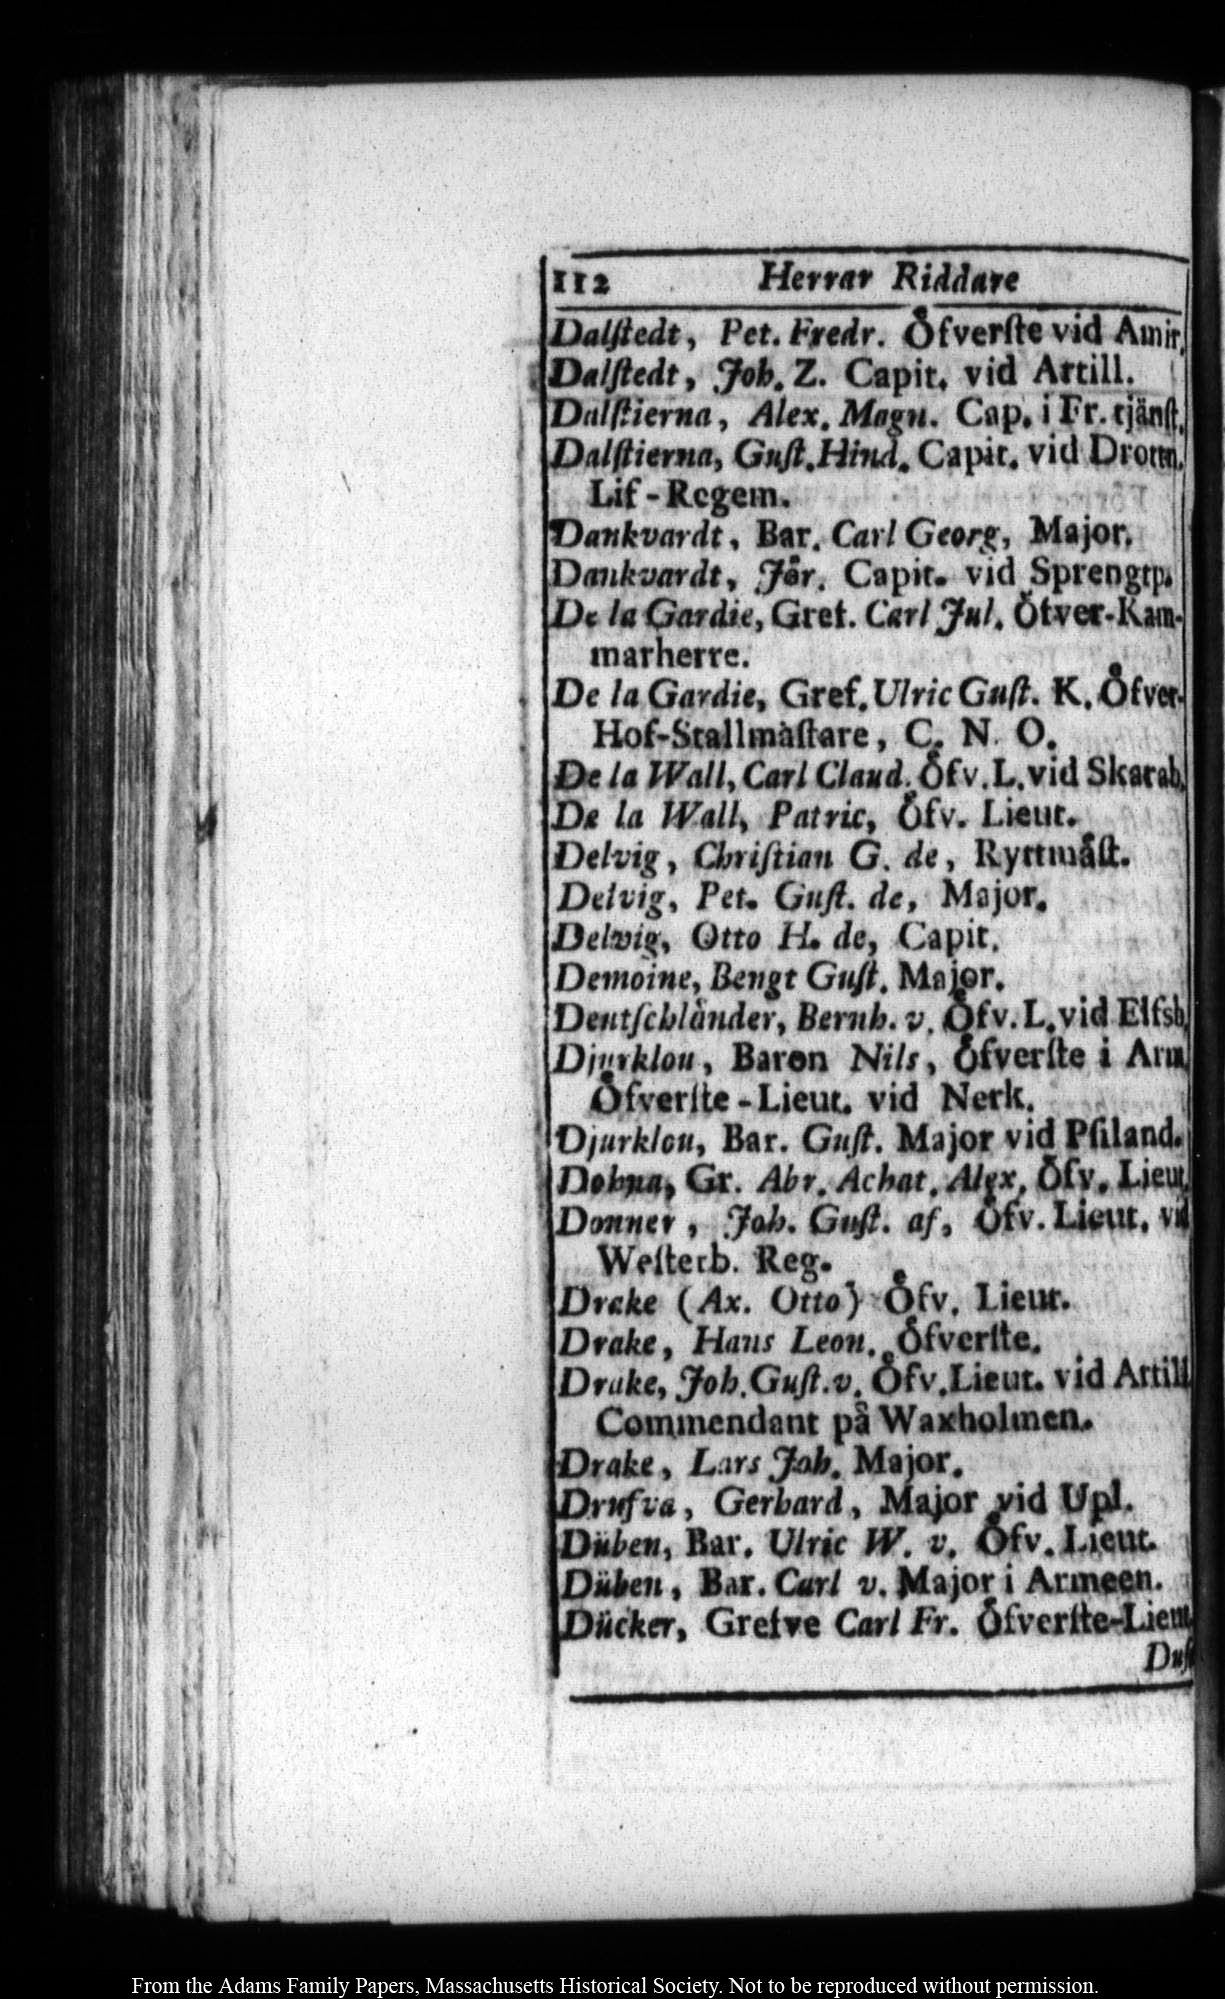 112 Herrar Riddare
Dalſtedt, Pet. Fredr. Öfverſte vid Amir.
Dalſtedt, Joh. Z. Capit. vid Artill.
Dalſtierna, Alex. Magn. Cap. i Fr. tjänſt.
Dalſtierna, Guſt. Hind. Capit. vid Drottn.
Lif-Regem.
Dankvardt, Bar. Carl Georg, Major.
Dankvardt, Jör. Capit. vid Sprengtp.
De la Gardie, Gref. Carl Jul. Öfver-Kam-
marherre.
De la Gardie, Gref. Ulric Guſt. K. Öfver-
Hof-Stallmäſtare, C. N. O.
De la Wall, Carl Claud. Öfv. L. vid Skarab.
De la Wall, Patric, Öfv. Lieut.
Delvig, Chriſtian G. de, Ryttmäſt.
Delvig, Pet. Guſt. de, Major.
Delwig, Otto H. de, Capit.
Demoine, Bengt Guſt. Major.
Deutſchländer, Bernh. v. Öfv. L. vid Elfsb.
Djurklou, Baron Nils, Öfverſte i Arm.
Öfverſte-Lieut. vid Nerk.
Djurklou, Bar. Guſt. Major vid Pſiland.
Dohna, Gr. Abr. Achat. Alex. Öfv. Lieut.
Donner, Joh. Guſt. af, Öfv. Lieut. vid
Weſterb. Reg.
Drake (Ax. Otto) Öfv. Lieut.
Drake, Hans Leon. Öfverſte.
Drake, Joh. Guſt. v. Öfv. Lieut. vid Artill
Commendant på Waxholmen.
Drake, Lars Joh. Major.
Drufva, Gerhard, Major vid Upl.
Düben, Bar. Ulric W. v. Öfv. Lieut.
Düben, Bar. Carl v. Major i Armeen.
Dücker, Grefve Carl Fr. Öfverſte-Lieut.
From the Adams Family Papers, Massachusetts Historical Society. Not to be reproduced without permission.